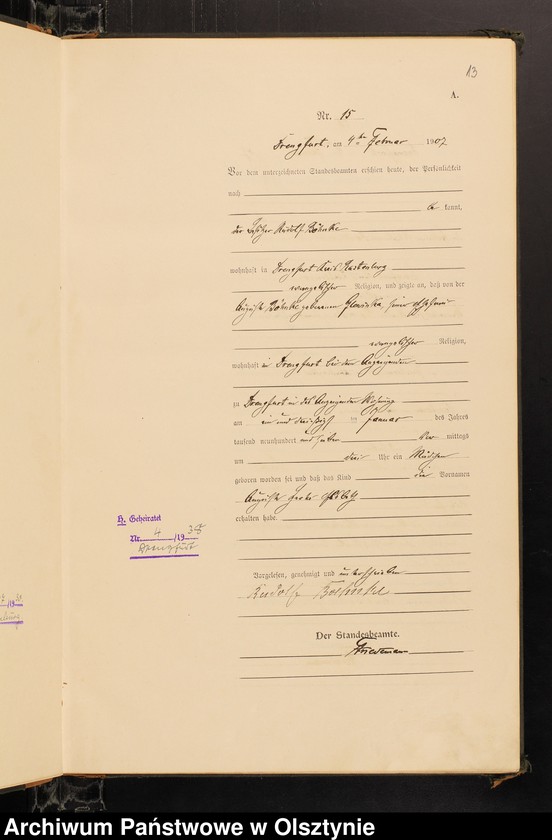 13
A.
Nr. 15
Drengfurt, am 4ten Februar 1907
Vor dem unterzeichneten Standesbeamten erschien heute, der Persönlichkeit
nach
be kannt,
der Besitzer Rudolf Böhnke
wohnhaft in Drengfurt Kreis Rastenburg
evangelischer Religion, und zeigte an, daß von der
Auguste Böhnke geborenen seiner Ehefrau
evangelischer Religion,
wohnhaft in Drengfurt bei dem Anzeigenden
zu Drengfurt in des Anzeigenden Wohnung
am ein und dreißigsten Januar des Jahres
tausend neunhundert und sieben Vor mittags
um drei Uhr ein Mädchen
geboren worden sei und daß das Kind die Vornamen
Auguste
erhalten habe.
H. Geheiratet
Nr. 4 /1938
Drengfurt
Vorgelesen, genehmigt und unterschrieben
Rudolf Boehnke
Der Standesbeamte.
Archiwum Państwowe w Olsztynie